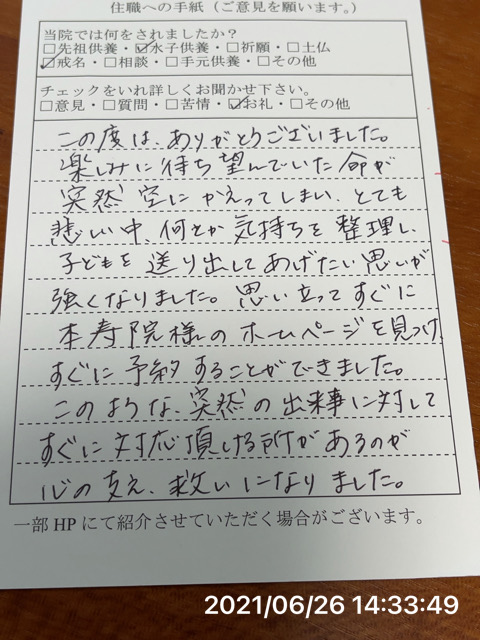 住職への手紙（ご意見を願います。）
当院では何をされましたか？
□先祖供養・☑水子供養・□祈願・□土仏
☑戒名・□相談・□手元供養・□その他
チェックをいれ詳しくお聞かせ下さい。
□意見・□質問・□苦情・☑お礼・□その他
この度は、ありがとうございました。
楽しみに待ち望んでいた命が
突然空にかえってしまい、とても
悲しい中、何とか気持ちを整理し、
子どもを送り出してあげたい思いが
強くなりました。思い立ってすぐに
本寿院様のホームページを見つけ、
すぐに予約することができました。
このような、突然の出来事に対して
すぐに対応頂ける所があるのが
心の支え、救いになりました。
一部HPにて紹介させていただく場合がございます。
2021/06/26 14:33:49